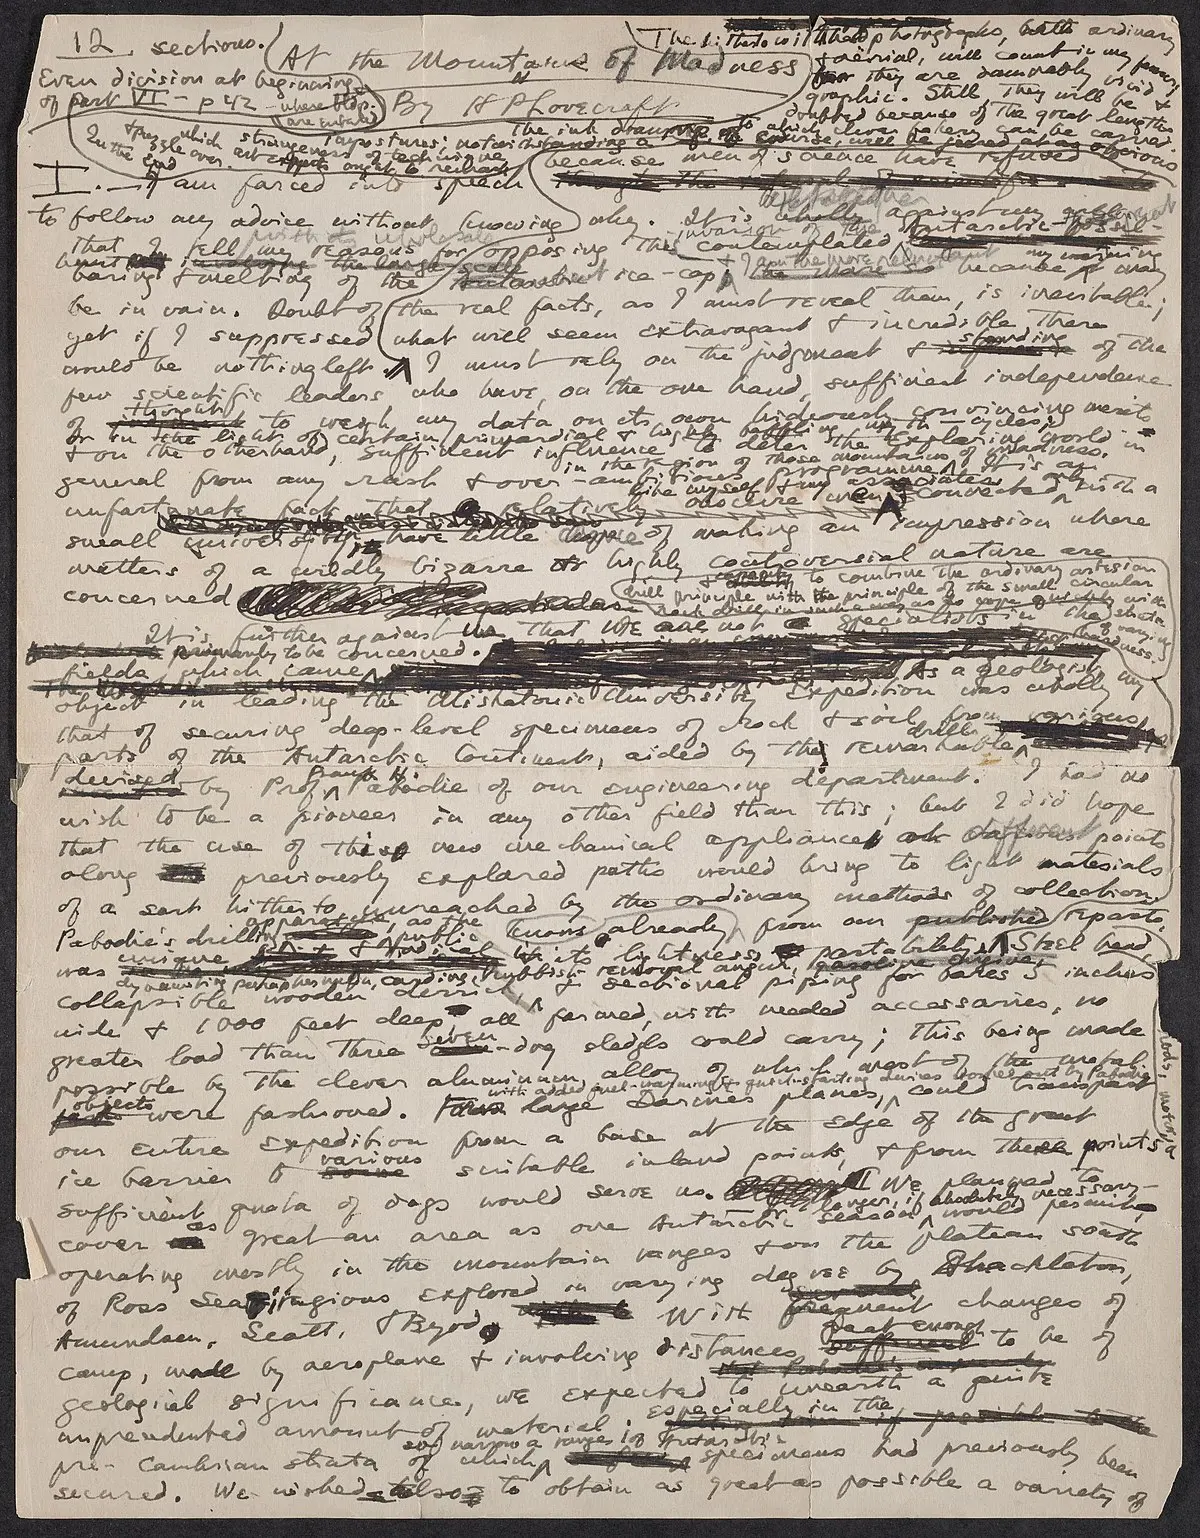 12 sections.
Even division at beginning
of part VI - p 42 -
where bldgs.
are entered
At the Mountains of Madness
By H P Lovecraft
The hitherto withheld photographs, both ordinary
& aërial, will count in my favour;
for they are damnably vivid &
graphic. Still they will be
doubted because of the great lengths
to which clever fakery can be carried.
The ink drawings, of course, will be jeered at as obvious
impostures; notwithstanding a
strangeness of technique
which art experts ought to remark
& puzzle over.
In the end
I. — I am forced into speech because men of science have refused
to follow my advice without knowing why. It is altogether against my will
that I tell my reasons for opposing this contemplated invasion of the antarctic
- with its
fossil-
hunt
boring & melting of the ice-cap; & I am the more reluctant because my warning may
be in vain. Doubt of the real facts, as I must reveal them, is inevitable;
yet if I suppressed what will seem extravagant & incredible there
would be nothing left. I must rely on the judgment & standing of the
few scientific leaders who have, on the one hand, sufficient independence
of thought to weigh my data on its own hideously convincing merits
or in the light of certain primordial & highly baffling myth-cycles;
& on the other hand, sufficient influence to deter the exploring world in
general from any rash & over-ambitious programme
in the region of those mountains of madness.
It is an
unfortunate fact that relatively obscure men
like myself & my associates,
connected only with a
small university, have little chance of making an impression where
matters of a wildly bizarre or highly controversial nature are
concerned
It is further against us that we are not specialists in the
fields which came primarily to be concerned.
As a geologist my
object in leading the Miskatonic University Expedition was wholly
that of securing deep-level specimens of rock & soil from various
parts of the Antarctic Continent, aided by the remarkable drill
devised by Prof. Frank H. Pabodie of our engineering department. I had no
wish to be a pioneer in any other field than this; but I did hope
that the use of this new mechanical appliance at different points
along previously explored paths would bring to light materials
of a sort hitherto unreached by the ordinary methods of collection.
Pabodie's drilling apparatus, as the public knows already from our reports,
was unique in its lightness, portability,
& capacity to combine the ordinary artesian
drill principle with the principle of the small circular
rock drill in such a way as to cope quickly with
strata of varying
hardness.
Steel head,
rods, motor,
gasoline engine,
collapsible wooden derrick,
dynamiting paraphernalia, cording, rubbish-removal auger,
& sectional piping for bores 5 inches
wide & 1000 feet deep all formed, with needed accessories, no
greater load than three seven-dog sledges could carry; this being made
possible by the clever aluminum alloy of which most of the metal
objects were fashioned. Four large Dornier planes,
with added fuel-warming & quick-starting devices worked out by Pabodie,
could transport
our entire expedition from a base at the edge of the great
ice barrier to various suitable inland points, & from these points a
sufficient quota of dogs would serve us. We planned to
cover as great an area as one Antarctic season
or longer, if absolutely necessary—
would permit,
operating mostly in the mountain ranges & on the plateau south
of Ross Sea; regions explored in varying degree by Shackleton,
Amundsen, Scott, & Byrd. With frequent changes of
camp, made by aeroplane & involving distances great enough to be of
geological significance, we expected to unearth a quite
unprecedented amount of material; especially in the
pre-Cambrian strata of which so narrow a range of Antarctic specimens had previously been
secured. We wished also to obtain as great as possible a variety of